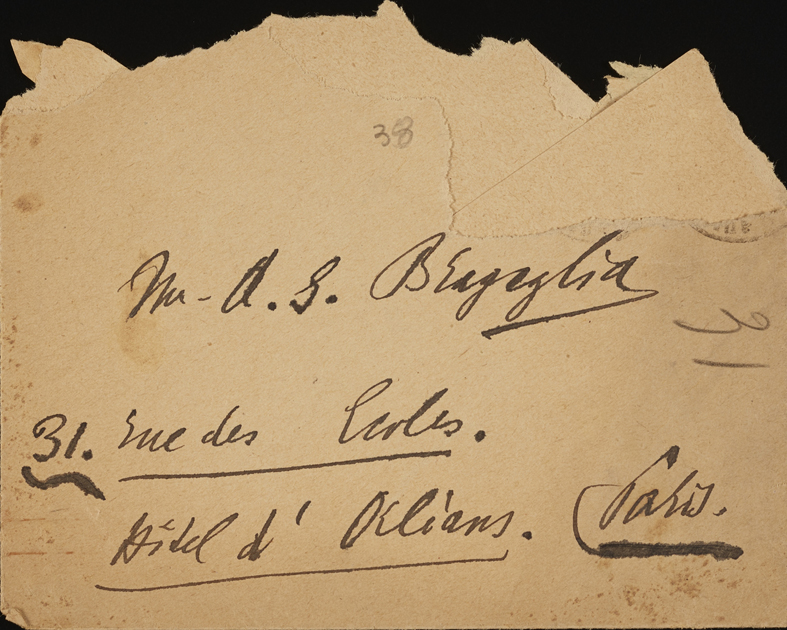 38
Mr - A. G. Bragaglia
31. rue des Ecoles.
Hôtel d' Orléans. Paris.